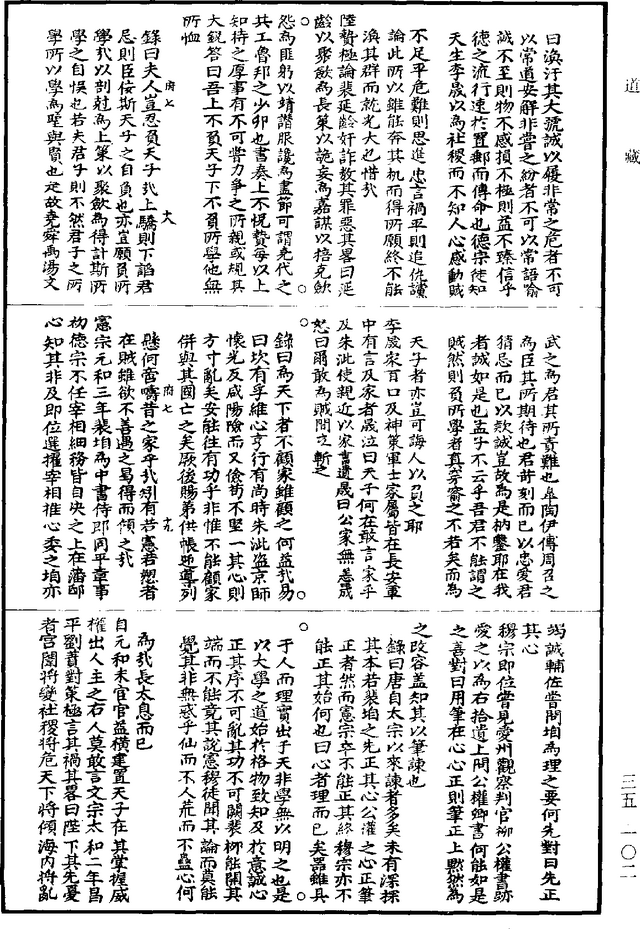 道藏
曰渙汗其大號誠以履非常之危者不可
以常道安解非嘗之紛者不可以常語喻
誠不至則物不感損不極則益不臻信乎
德之流行速於置郵而傳命也德宗徒知
天生李晟以為社稷而不知人心感動賊
不足平危難則思進忠言禍平則追仇讟
論此所以雖能奔其机而得所願終不能
渙其群而就光大也惜哉
陸贄極論裴延齡奸詐數其罪惡其畧曰延
齡以聚歛為長策以詭妄為嘉謀以掊克歛
怨為匪躬以靖譖服讒為盡節可謂堯代之
共工魯邦之少卯也書奏上不悅贄每以上
知待之厚事有不可嘗力爭之所親或規其
大銳答曰吾上不負天子下不負所學他無
所恤
錄曰夫人豈忍負天子哉上驕則下諂君
忌則臣佞斯天子之自負也亦豈願負所
學哉以剖尅為上策以聚歛為得計斯所
學之自悞也若夫君子則不然君子之所
學所以學為聖與賢也是故堯舜禹湯文
府七 大
武之為君其所責難也皐陶伊傅周召之
為臣其所期待也君苛刻而已以忠愛君
猜忌而已以欵誠豈故為是枘鑿耶在我
者誠如是也孟子不云乎吾君不能謂之
賊然則負所學者真穿窬之不若矣而為
天子者亦豈可誨人以負之耶
李晟家百口及神策軍士家屬皆在長安軍
中有言及家者晟泣曰天子何在敢言家乎
及朱泚使親近以家書遺晟曰公家無恙晟
怒曰爾敢為賊間立斬之
錄曰為天下者不顧家雖顧之何益哉易
曰坎有孚維心亨行有尚時朱泚盜京師
懷光反咸陽險而又儉苟不堅一其心則
方寸亂矣安能往有功乎非惟不能顧家
併與其國亡之矣厥後賜第供帳迎導列
懸何啻疇昔之家乎哉矧有若憲若愬者
在賊雖欲不善遇之曷得而傾之哉
府七
憲宗元和三年裴垍為中書侍郎同平章事
初德宗不任宰相細務皆自央之上在藩邸
心知其非及即位選擢宰相推心委之垍亦
竭誠輔佐嘗問垍為理之要何先對曰先正
其心
穆宗即位嘗見夔州觀察判官柳公權書跡
愛之以為右拾遺上問公權卿書何能如是
之善對曰用筆在心心正則筆正上默然為
之改容蓋知其以筆諫也
錄曰唐自太宗以來諫者多矣未有深探
其本若裴垍之先正其心公權之心正筆
正者然而憲宗卒不能正其終穆宗亦不
能正其始何也曰心者理而已矣器雖具
于人而理實出于天非學無以明之也是
以大學之道始於格物致知及於意誠心
正其序不可亂其功不可闕裴柳能開其
端而不能竟其說憲穆徒聞其論而莫能
覺其非無惑乎仙而不人荒而不蠱心何
為哉長太息而已
自元和末宦官益橫建置天子在其掌握威
權出人主之右人莫敢言文宗太和二年昌
平劉蕡對策極言其禍其畧曰陛下其先憂
者宮闈將變社稷將危天下將傾海內將亂
三五 一〇二